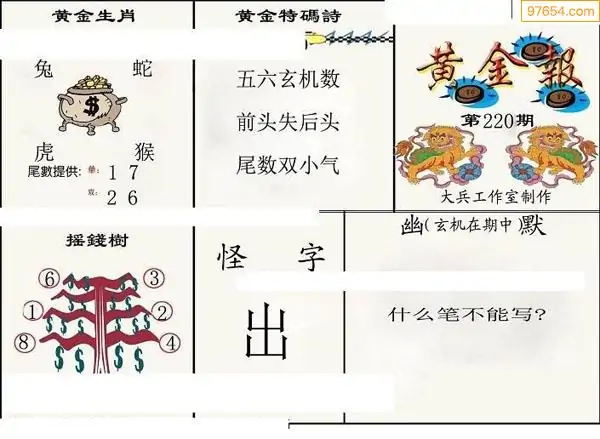 97654.com
黄金生肖
兔 蛇
$
虎 猴
尾數提供: 单: 1 7
双: 2 6
黄金特碼詩
五六玄机数
前头失后头
尾数双小气
黄金報
第220期
大兵工作室制作
摇錢樹
⑥ ③
① ②
⑧ ④
怪字
出
幽(玄机在期中)默
什么笔不能写?